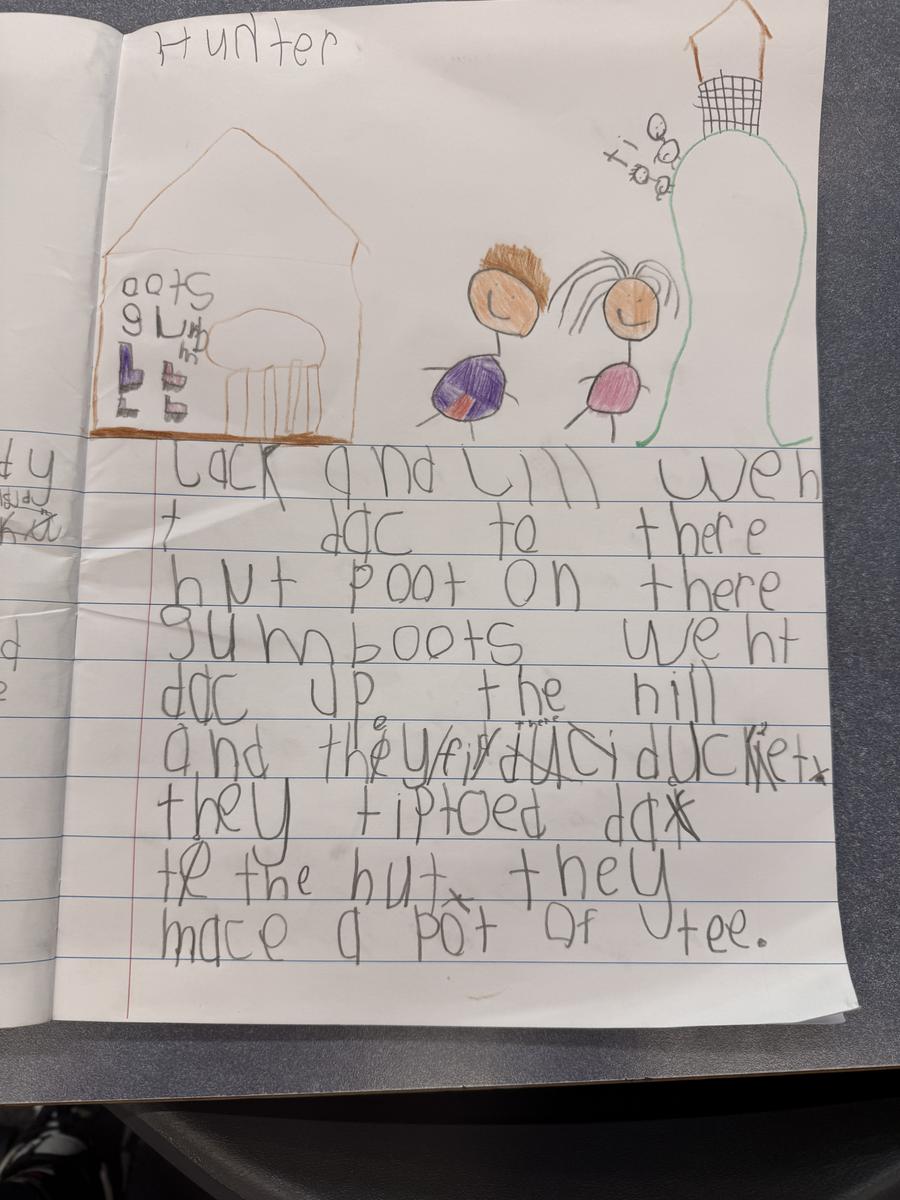 Hunter
ti
oots
gum
Lack and Lill wen
t dac to there
hut poot on there
gumboots went
dac up the hill
and they there duckiet.
they tiptoed dak
to the hut. they
mace a pot of tee.
dy
d
e